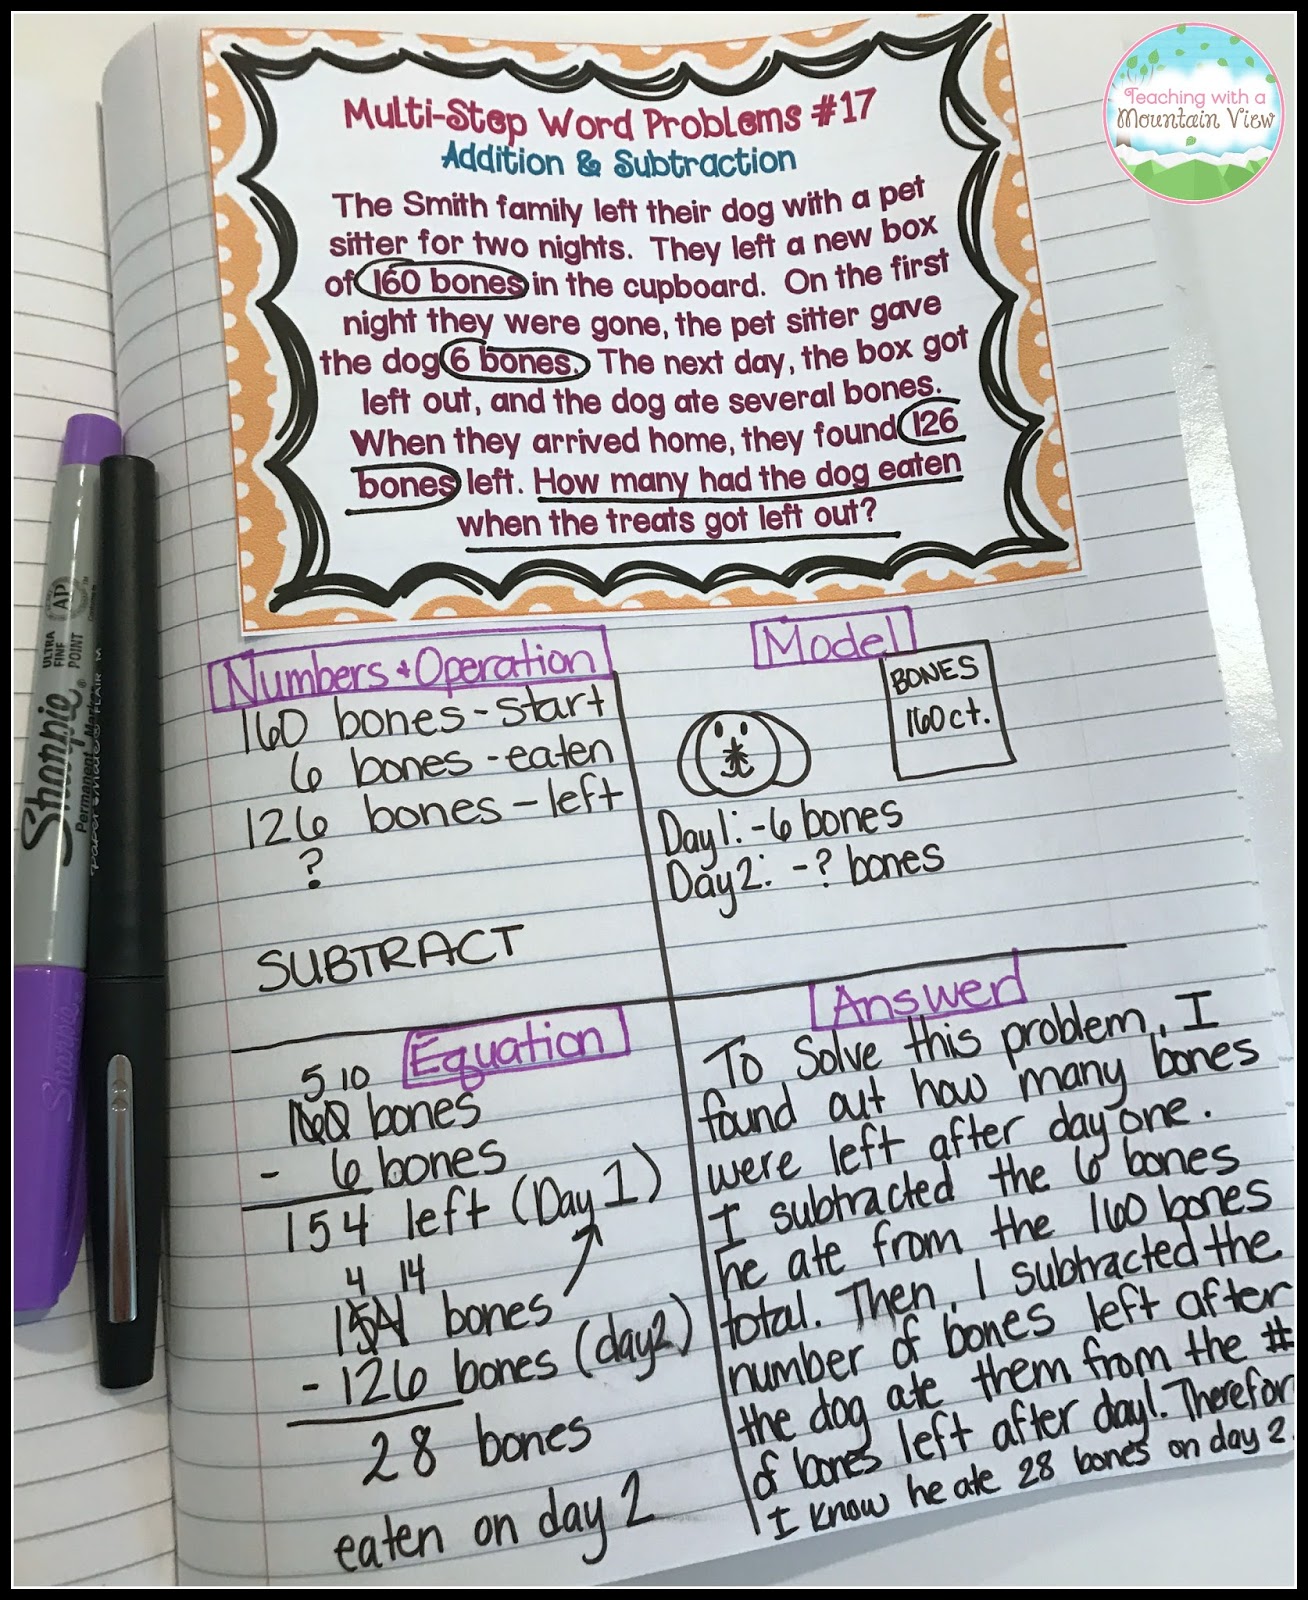 Teaching with a
Mountain View
Multi-Step Word Problems #17
Addition & Subtraction
The Smith family left their dog with a pet
sitter for two nights. They left a new box
of 160 bones in the cupboard. On the first
night they were gone, the pet sitter gave
the dog 6 bones. The next day, the box got
left out, and the dog ate several bones.
When they arrived home, they found 126
bones left. How many had the dog eaten
when the treats got left out?
Numbers & Operation
160 bones - start
6 bones - eaten
126 bones - left
?
SUBTRACT
Model
BONES
160 ct.
Day 1: -6 bones
Day 2: -? bones
Equation
5 10
160 bones
- 6 bones
154 left (Day 1)
4 14
154 bones
- 126 bones (day 2)
28 bones
eaten on day 2
Answer
To solve this problem, I
found out how many bones
were left after day one.
I subtracted the 6 bones
he ate from the 160 bones
total. Then, I subtracted the
number of bones left after
the dog ate them from the #
of bones left after day 1. Therefor
I know he ate 28 bones on day 2.
Sharpie®
Permanent Marker
ULTRA
FINE
POINT
AP
Sharpie
FLAIR M